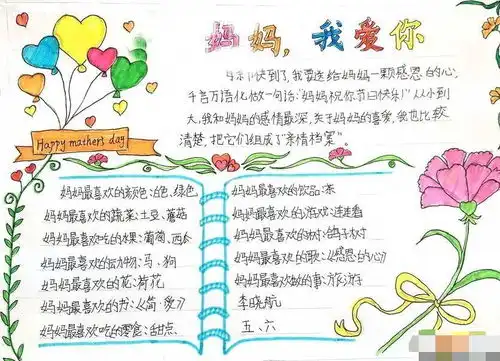 妈妈，我爱你
节快到了，我要送给妈妈一颗感恩的心，
千言万语化做一句话："妈妈祝你节日快乐！"从小到
大，我和妈妈的感情最深，关于妈妈的喜爱，我也比较
清楚，把它们组成了"亲情档案"。
Happy mathers day
妈妈最喜欢的颜色：白色、绿色
妈妈最喜欢的蔬菜：土豆、蘑菇
妈妈最喜欢吃的水果：葡萄、西瓜
妈妈最喜欢的动物：马、狗
妈妈最喜欢的花：荷花
妈妈最喜欢的书：《简·爱》
妈妈最喜欢吃的零食：甜点
妈妈最喜欢的饮品：茶
妈妈最喜欢的游戏：连连看
妈妈最喜欢的树：鸽子树
妈妈最喜欢的歌：《感恩的心》
妈妈最喜欢做的事：旅游
李晓航
五、六